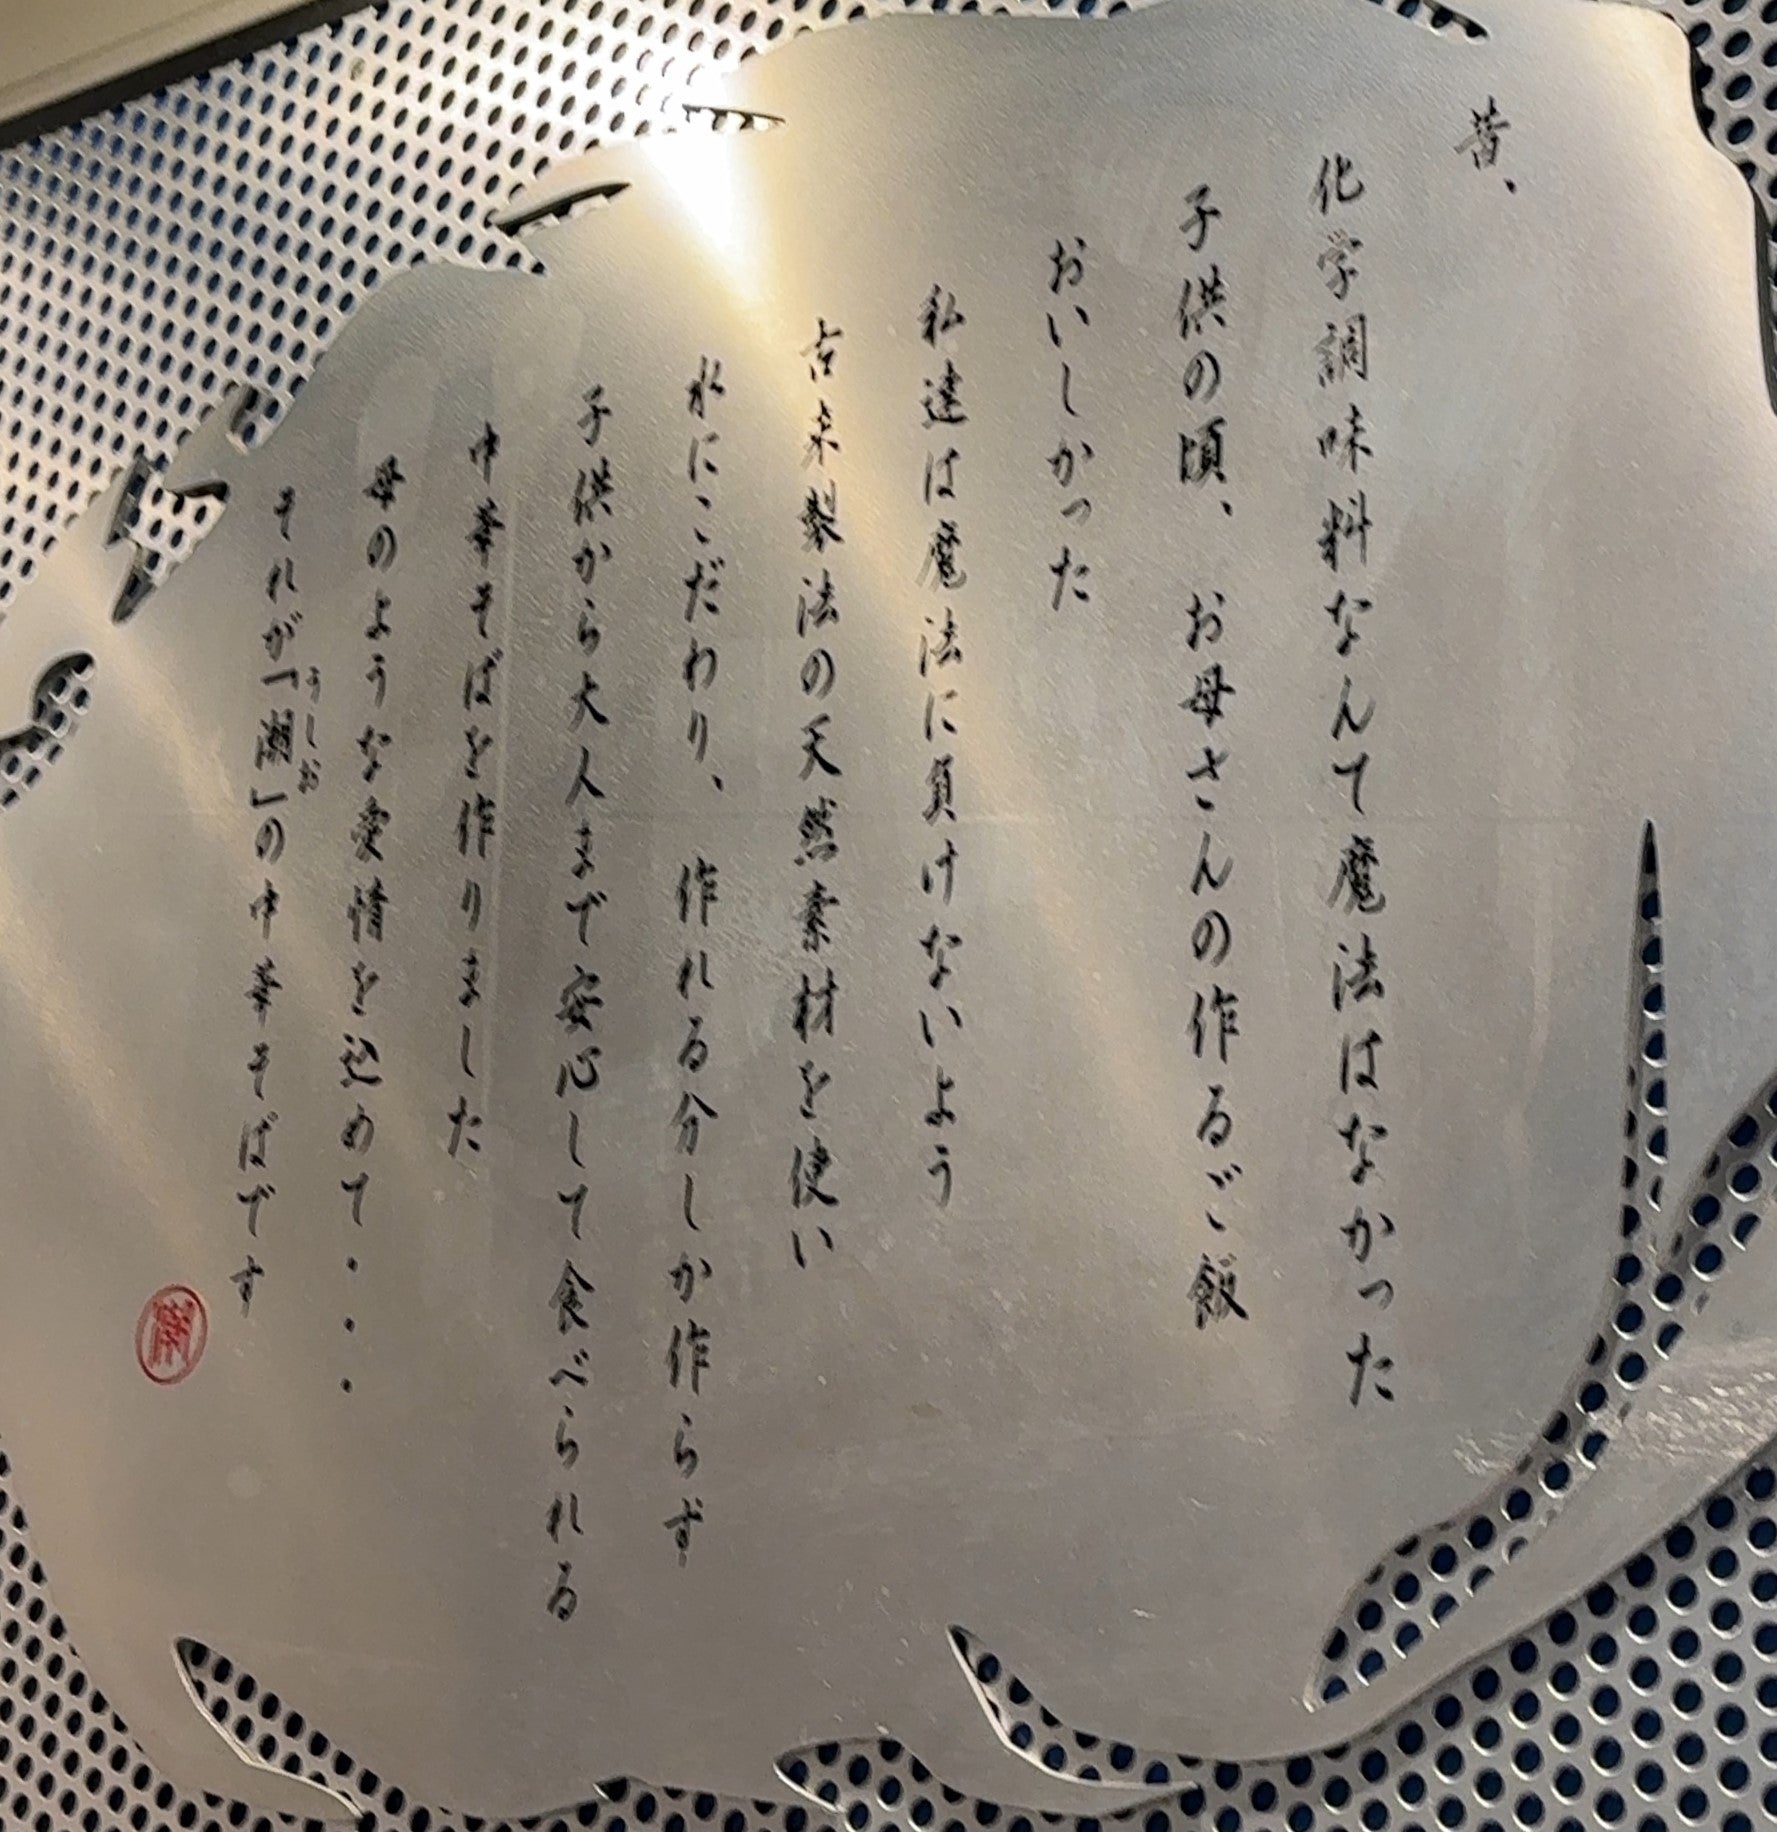 昔、
化学調味料なんて魔法はなかった
子供の頃、お母さんの作るご飯
おいしかった
私達は魔法に負けないよう
古来製法の天然素材を使い
水にこだわり、作れる分しか作らず
子供から大人まで安心して食べられる
中華そばを作りました
母のような愛情を込めて・・・
それが「潮」の中華そばです
うしお